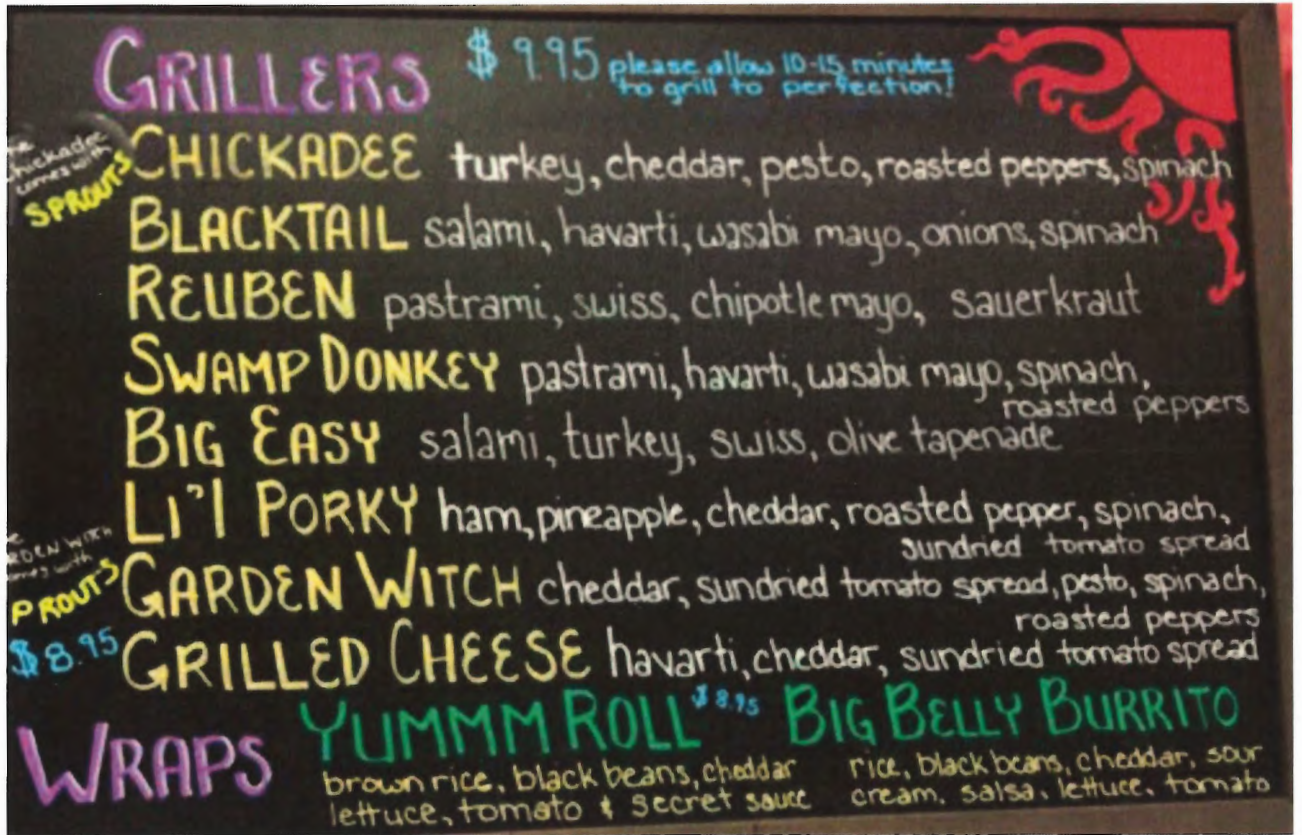 GRILLERS $9.95 please allow 10-15 minutes
to grill to perfection!
chickadee
comes with
SPROUTS
CHICKADEE turkey, cheddar, pesto, roasted peppers, spinach
BLACKTAIL salami, havarti, wasabi mayo, onions, spinach
REUBEN pastrami, swiss, chipotle mayo, sauerkraut
SWAMP DONKEY pastrami, havarti, wasabi mayo, spinach,
roasted peppers
BIG EASY salami, turkey, swiss, olive tapenade
LI'L PORKY ham, pineapple, cheddar, roasted pepper, spinach,
sundried tomato spread
RDEN WITCH
omes with
PROUTS
GARDEN WITCH cheddar, sundried tomato spread, pesto, spinach,
roasted peppers
$8.95 GRILLED CHEESE havarti, cheddar, sundried tomato spread
WRAPS
YUMMM ROLL $8.95
brown rice, black beans, cheddar
lettuce, tomato & secret sauce
BIG BELLY BURRITO
rice, black beans, cheddar, sour
cream, salsa, lettuce, tomato